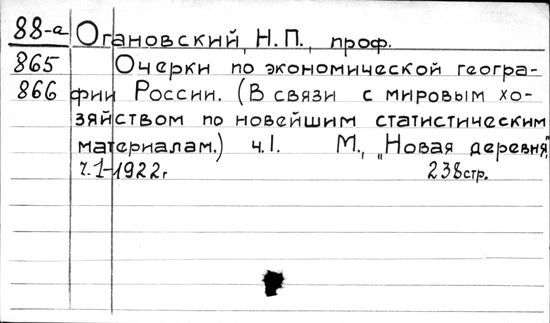 88-а Огановский, Н.П., проф.
865 Очерки по экономической геогра-
866 фии России. (В связи с мировым хо-
зяйством по новейшим статистическим
материалам.) ч.I. М., „Новая деревня",
ч.1-1922г 238стр.